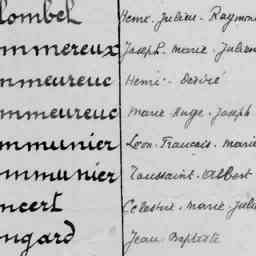 lombel Henri. Julien. Raymon
mmereux Joseph. Marie. Julien
mmeureuc Henri. Désiré
mmeureuc Marie Ange. Joseph
mmunier Léon. Francois. Marie
mmunier Toussaint. Albert
ncert Célestin. Marie. Juli
ngard Jean Baptiste